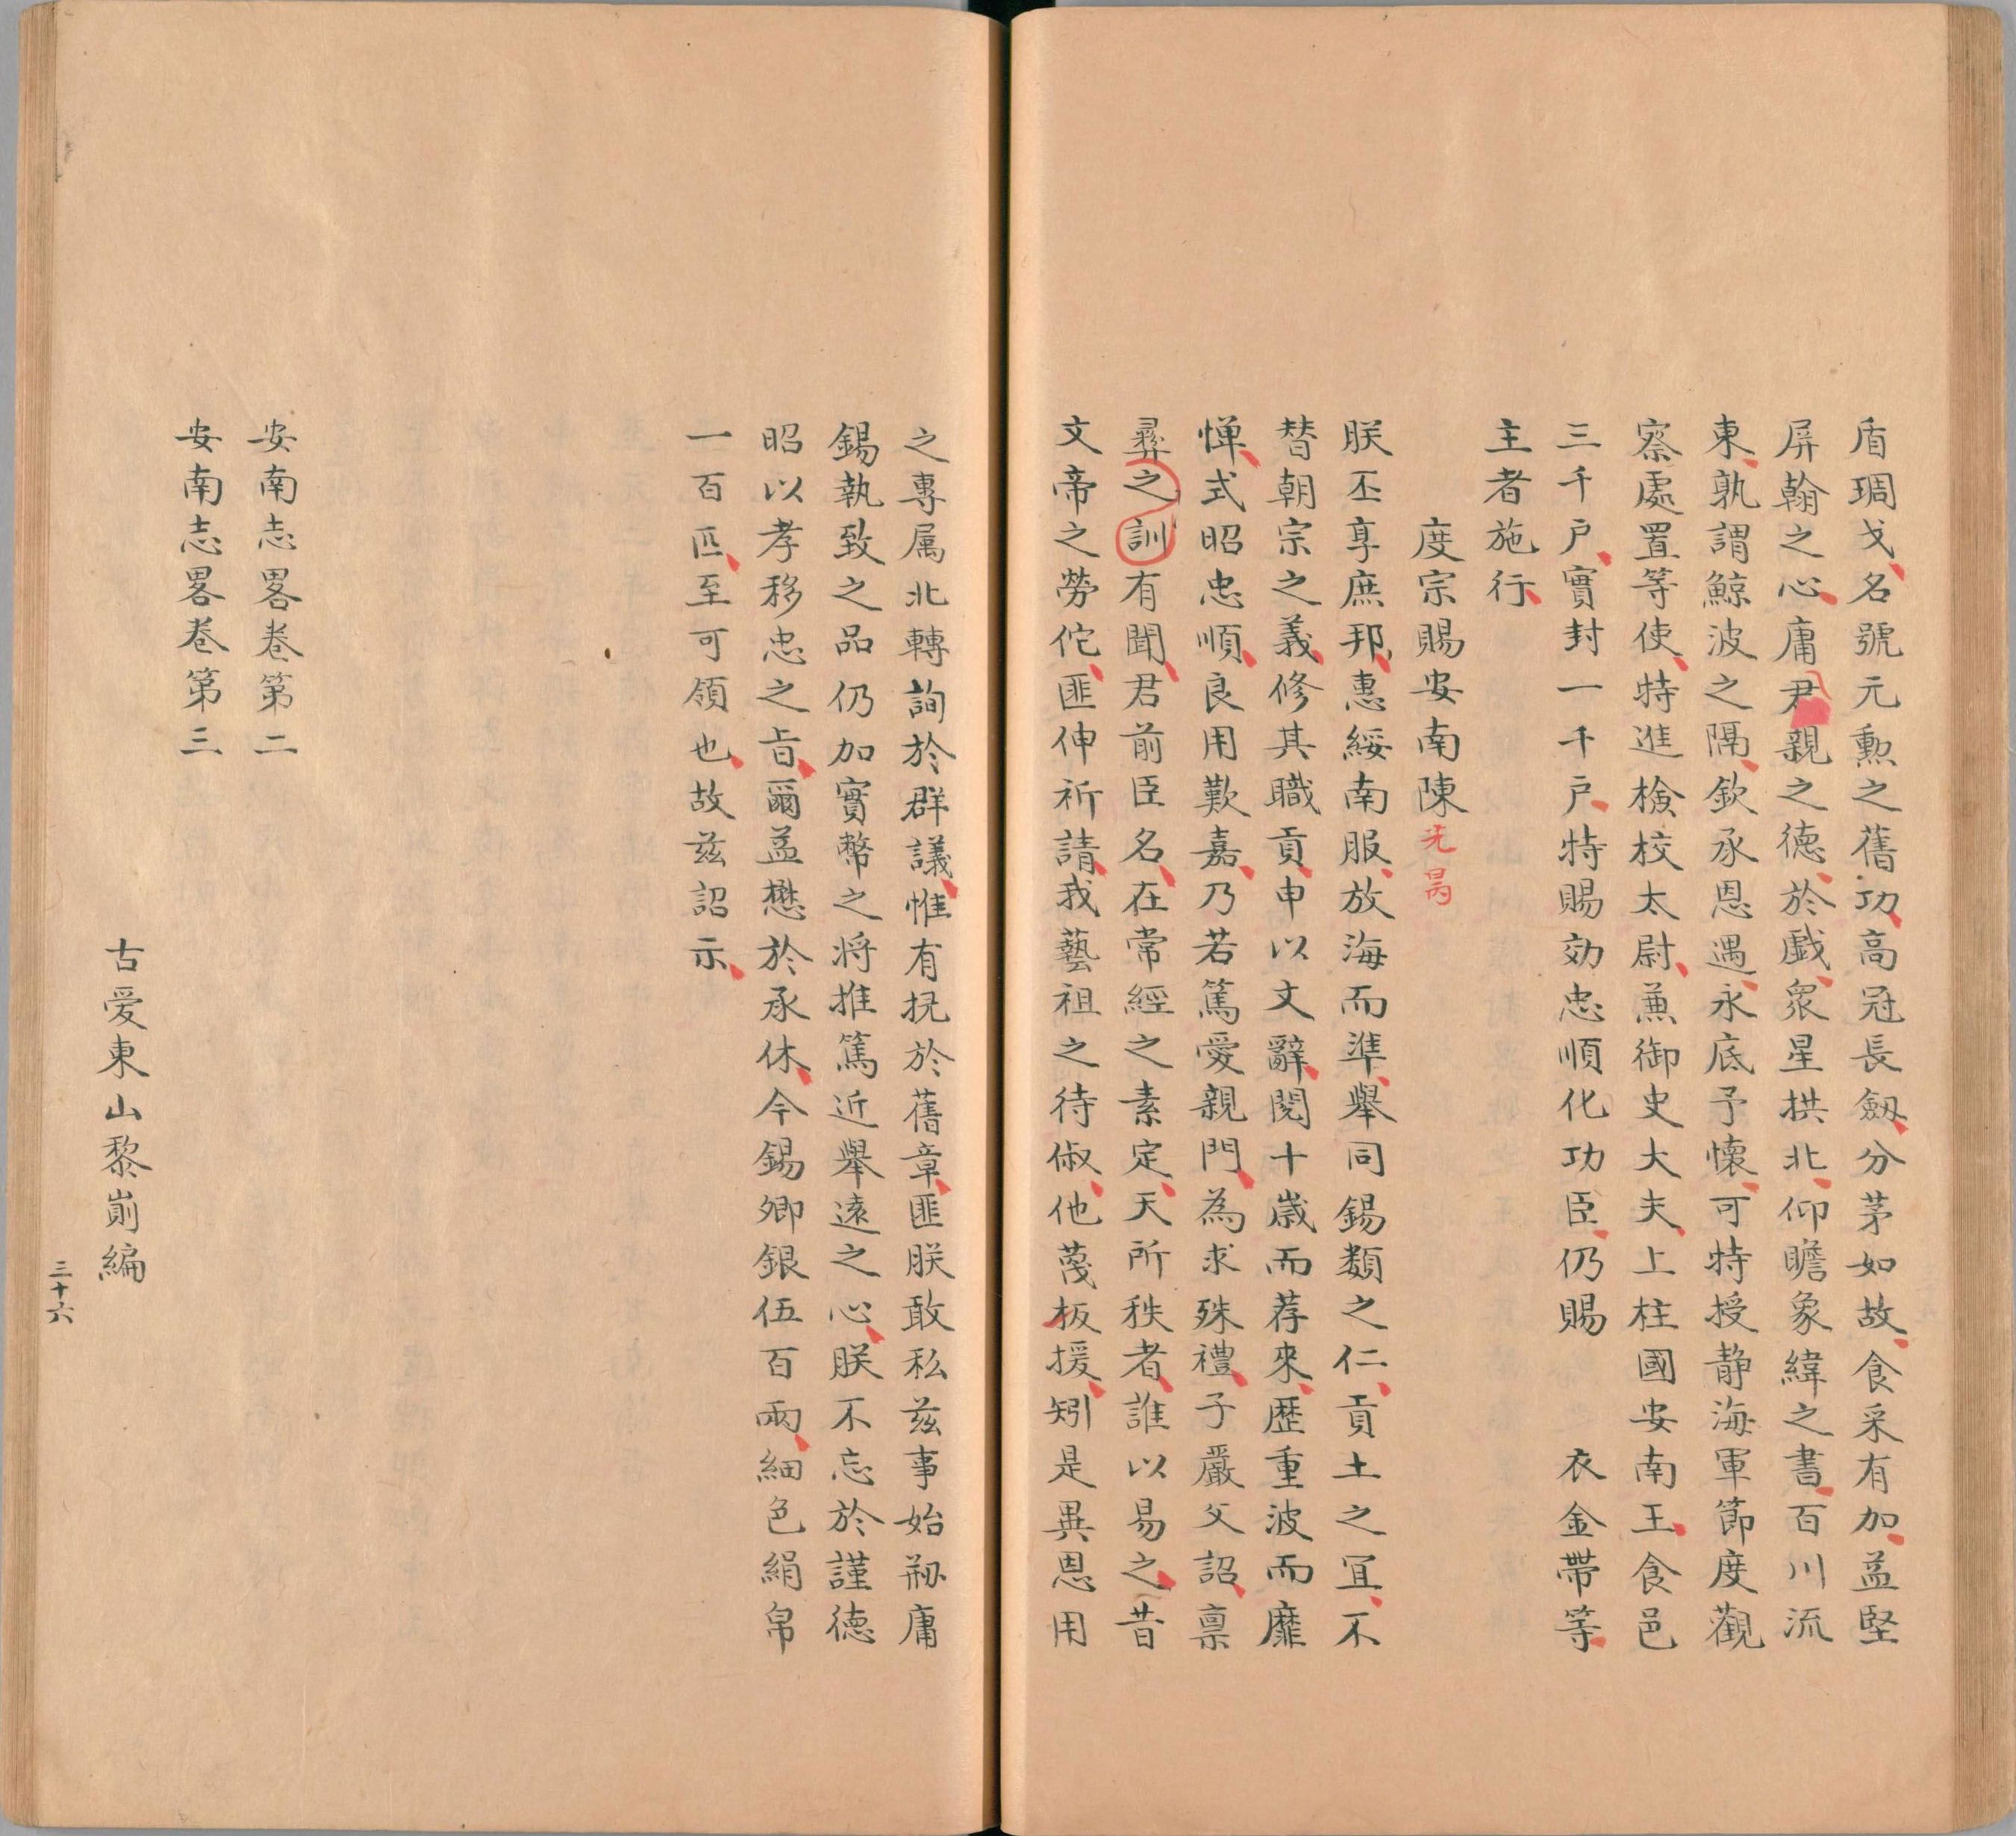 盾琱戈名號元勲之舊功高冠長劔分茅如故食采有加益堅
屏翰之心庸尹親之德於戲衆星拱北仰瞻象緯之書百川流
東孰謂鯨波之隔欽承恩遇永底予懷可特授静海軍節度觀
察處置等使特進檢校太尉兼御史大夫上柱國安南王食邑
三千戶實封一千戶特賜効忠順化功臣仍賜 衣金帶等
主者施行
度宗賜安南陳光昺
朕丕享庶邦惠綏南服放海而準舉同錫類之仁貢土之宜不
替朝宗之義修其職貢申以文辭閱十歲而荐來歷重波而靡
憚式昭忠順良用歎嘉乃若篤愛親門為求殊禮子嚴父詔禀
彛之訓有聞君前臣名在常經之素定天所秩者誰以易之昔
文帝之勞佗匪伸祈請我藝祖之待俶他蔑扳援矧是異恩用
之專属北轉詢於群議惟有挸於舊章匪朕敢私兹事始剏庸
錫執致之品仍加實幣之将推篤近舉遠之心朕不忘於謹德
昭以孝移忠之旨爾益懋於承休今錫卿銀伍百兩細色絹帛
一百匹至可領也故兹詔示
安南志畧卷第二
安南志畧卷第三
古爱東山黎崱編
三十六